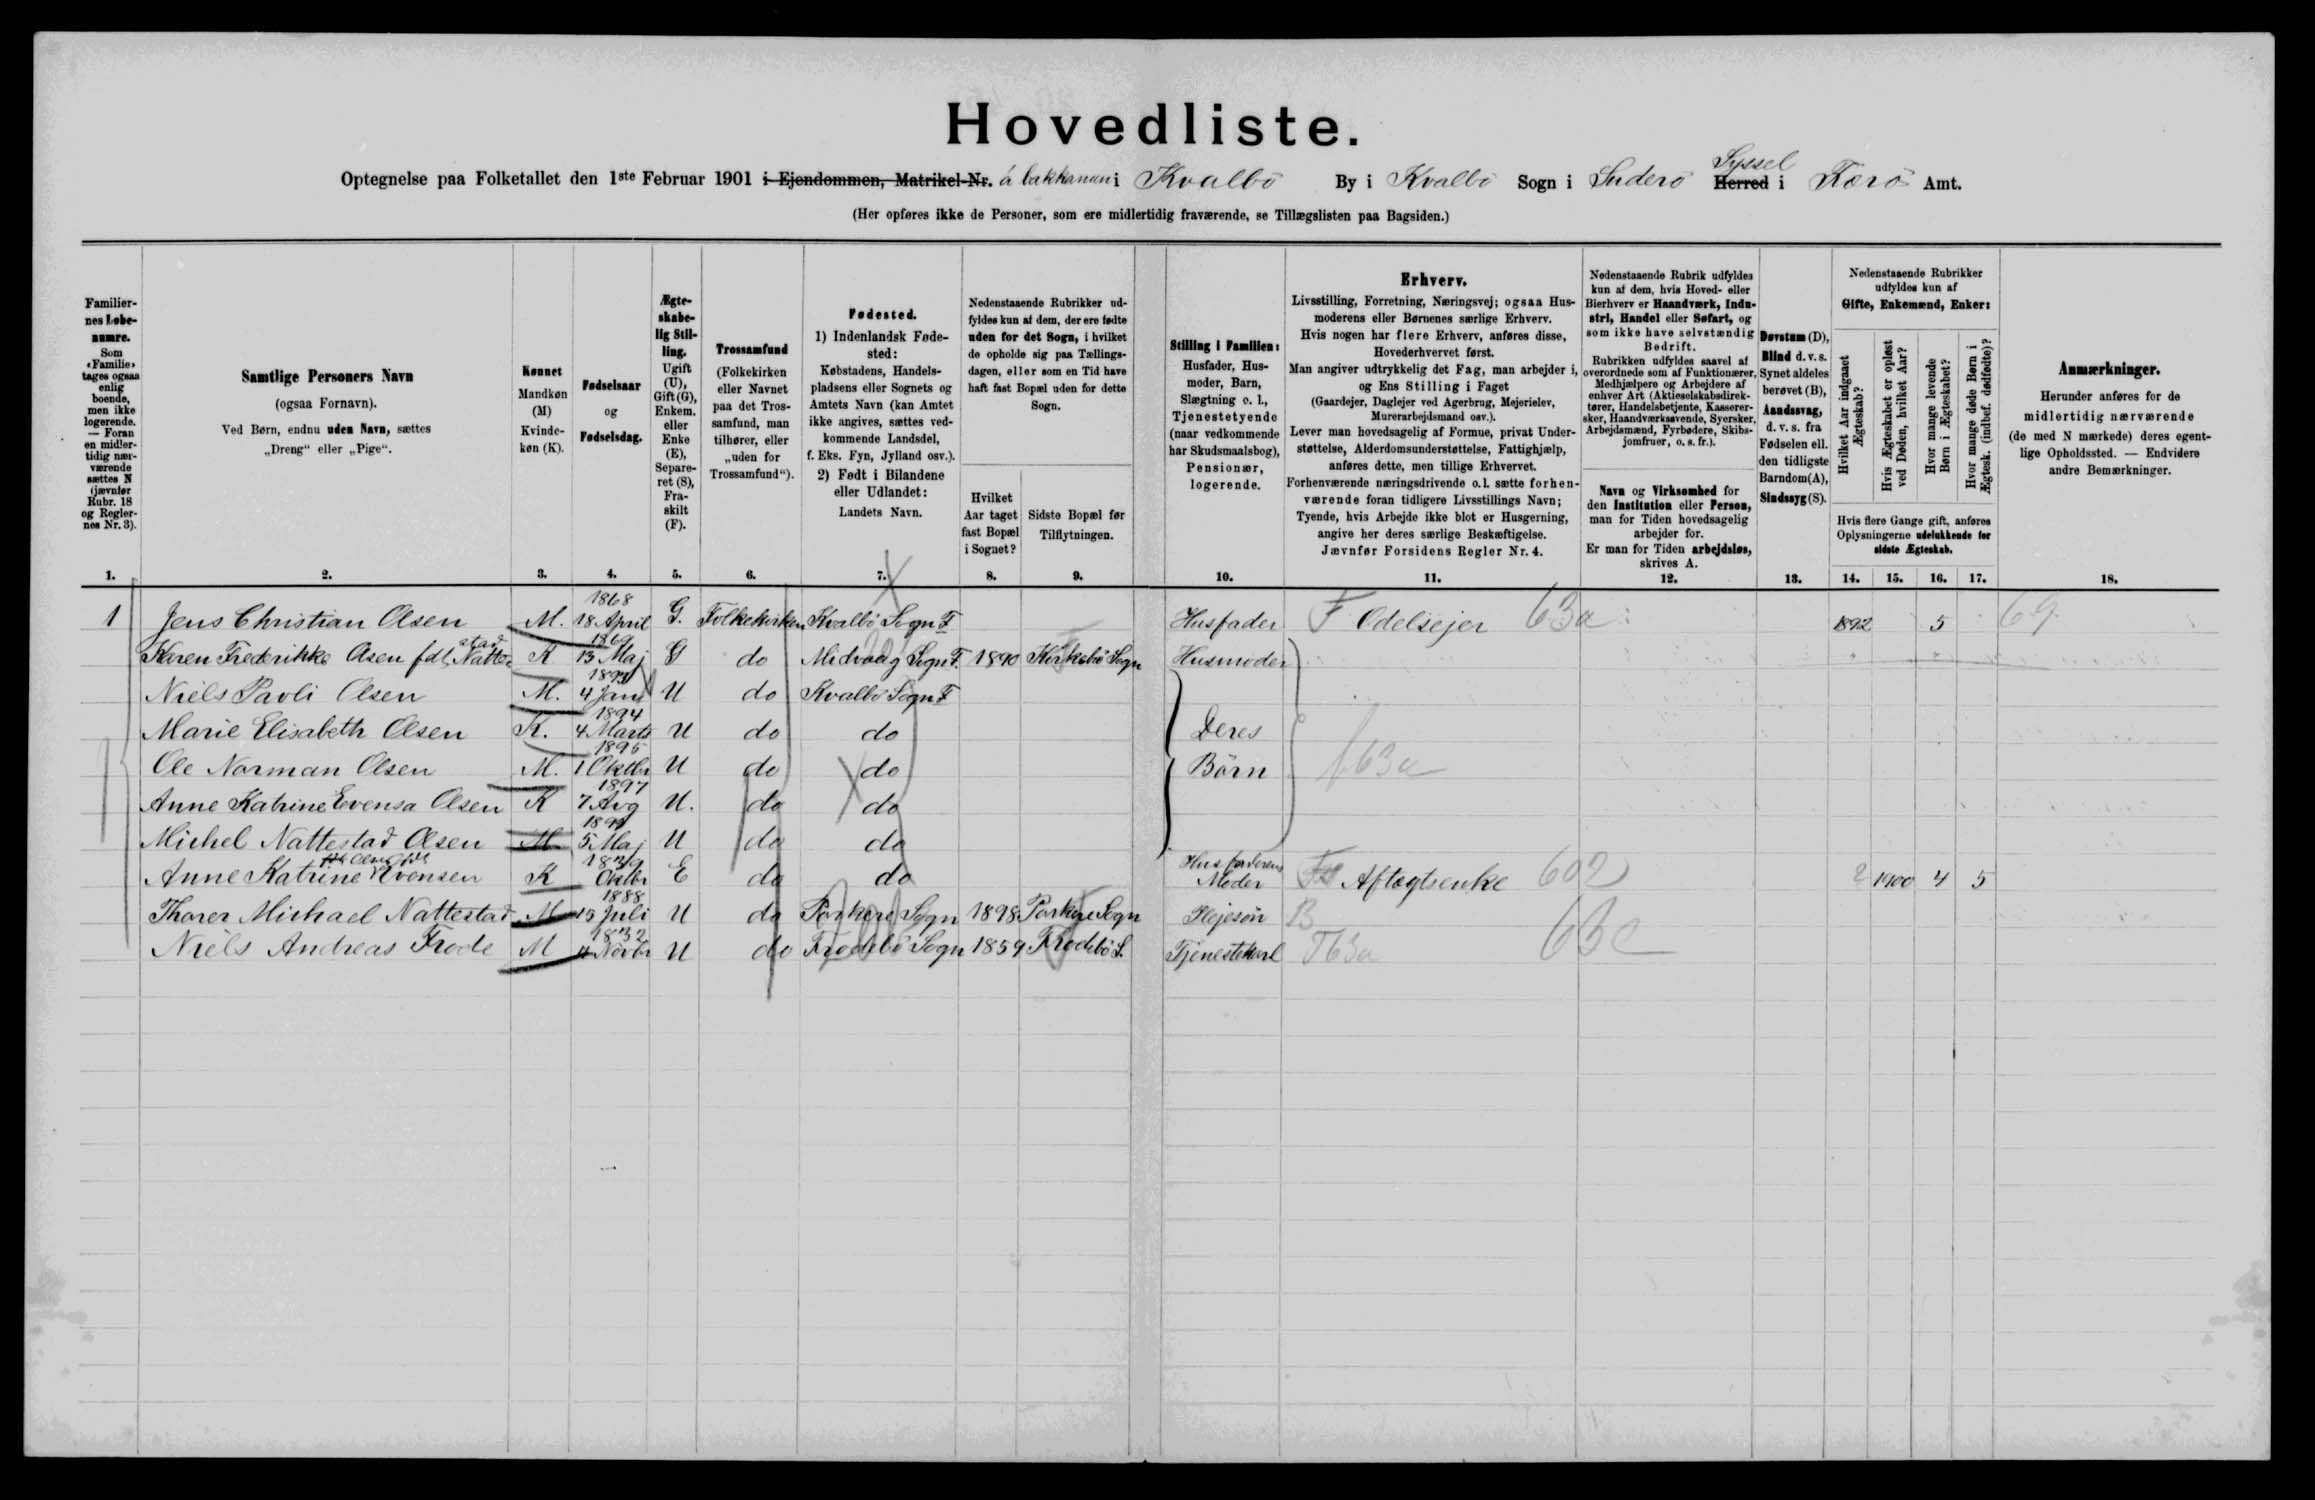 Hovedliste.
Optegnelse paa Folketallet den 1ste Februar 1901 i Ejendommen, Matrikel-Nr. á bakkanum i Kvalbö By i Kvalbö Sogn i Suderö Syssel Herred i Færö Amt.
(Her opføres ikke de Personer, som ere midlertidig fraværende, se Tillægslisten paa Bagsiden.)
Familiernes Løbenumre. Som «Familie» tages ogsaa enlig boende, men ikke logerende. — Foran en midlertidig nærværende sættes N (jævnfør Rubr. 18 og Reglernes Nr. 3).
Samtlige Personers Navn (ogsaa Fornavn). Ved Børn, endnu uden Navn, sættes „Dreng“ eller „Pige“.
Kønnet Mandkøn (M) Kvindekøn (K).
Fødselsaar og Fødselsdag.
Ægteskabelig Stilling. Ugift (U), Gift (G), Enkem. eller Enke (E), Separeret (S), Fraskilt (F).
Trossamfund (Folkekirken eller Navnet paa det Trossamfund, man tilhører, eller „uden for Trossamfund“).
Fødested. 1) Indenlandsk Fødested: Købstadens, Handelspladsens eller Sognets og Amtets Navn (kan Amtet ikke angives, sættes vedkommende Landsdel, f. Eks. Fyn, Jylland osv.). 2) Født i Bilandene eller Udlandet: Landets Navn.
Nedenstaaende Rubrikker udfyldes kun af dem, der ere fødte uden for det Sogn, i hvilket de opholde sig paa Tællingsdagen, eller som en Tid have haft fast Bopæl uden for dette Sogn.
Hvilket Aar taget fast Bopæl i Sognet?
Sidste Bopæl før Tilflytningen.
Stilling i Familien: Husfader, Husmoder, Barn, Slægtning o. l., Tjenestetyende (naar vedkommende har Skudsmaalsbog), Pensionær, logerende.
Erhverv.
Livsstilling, Forretning, Næringsvej; ogsaa Husmoderens eller Børnenes særlige Erhverv.
Hvis nogen har flere Erhverv, anføres disse, Hovederhvervet først.
Man angiver udtrykkelig det Fag, man arbejder i, og Ens Stilling i Faget (Gaardejer, Daglejer ved Agerbrug, Mejerielev, Murerarbejdsmand osv.).
Lever man hovedsagelig af Formue, privat Understøttelse, Alderdomsunderstøttelse, Fattighjælp, anføres dette, men tillige Erhvervet.
Forhenværende næringsdrivende o. l. sætte forhenværende foran tidligere Livsstillings Navn; Tyende, hvis Arbejde ikke blot er Husgerning, angive her deres særlige Beskæftigelse.
Jævnfør Forsidens Regler Nr. 4.
Nedenstaaende Rubrik udfyldes kun af dem, hvis Hoved- eller Bierhverv er Haandværk, Industri, Handel eller Søfart, og som ikke have selvstændig Bedrift.
Rubrikken udfyldes saavel af overordnede som af Funktionærer, Medhjælpere og Arbejdere af enhver Art (Aktieselskabsdirektører, Handelsbetjente, Kasserersker, Haandværkssvende, Syersker, Arbejdsmænd, Fyrbødere, Skibsjomfruer, o. s. fr.).
Navn og Virksomhed for den Institution eller Person, man for Tiden hovedsagelig arbejder for. Er man for Tiden arbejdsløs, skrives A.
Døvstum (D), Blind d. v. s. Synet aldeles berøvet (B), Aandssvag, d. v. s. fra Fødselen ell. den tidligste Barndom (A), Sindssyg (S).
Nedenstaaende Rubrikker udfyldes kun af Gifte, Enkemænd, Enker:
Hvilket Aar indgaaet Ægteskab?
Hvis Ægteskabet er opløst ved Døden, hvilket Aar?
Hvor mange levende Børn i Ægteskabet?
Hvor mange døde Børn i Ægtesk. (indbef. dødfødte)?
Hvis flere Gange gift, anføres Oplysningerne udelukkende for sidste Ægteskab.
Anmærkninger. Herunder anføres for de midlertidig nærværende (de med N mærkede) deres egentlige Opholdssted. — Endvidere andre Bemærkninger.
1. 2. 3. 4. 5. 6. 7. 8. 9. 10. 11. 12. 13. 14. 15. 16. 17. 18.
1 Jens Christian Olsen M. 1868 18 April G. Folkekirken Kvalbö Sogn F Husfader F Odelsejer 63a 1892 5 69
Karen Frederikke Olsen fdt Nattestad K 1869 13 Maj G do Midvaag Sogn F. 1890 Husmoder
Niels Pavli Olsen M. 4 Jan U do Kvalbö Sogn F
Marie Elisabeth Olsen K. 1894 4 Marts U do do Deres
Ole Norman Olsen M. 1895 1 Oktbr U do do Börn f 63a
Anne Katrine Evensa Olsen K 1897 7 Avg U. do do
Michel Nattestad Olsen M 1899 5 Maj U do do
Anne Katrine Evensen K 1839 Oktbr E do do Husfaderens Moder Aftægtsenke 602 2 1900 4 5
Thorer Michael Nattestad M 1888 15 Juli U do Porkere Sogn 1898 Porkere Sogn Plejesön B
Niels Andreas Frode M 1832 4 Novbr U do Frodebö Sogn 1859 Frodebö S. Tjenestekarl T63a 63c